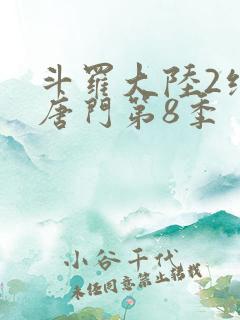 斗羅大陸2
唐門第8季
小谷千代
未经同意禁止转载